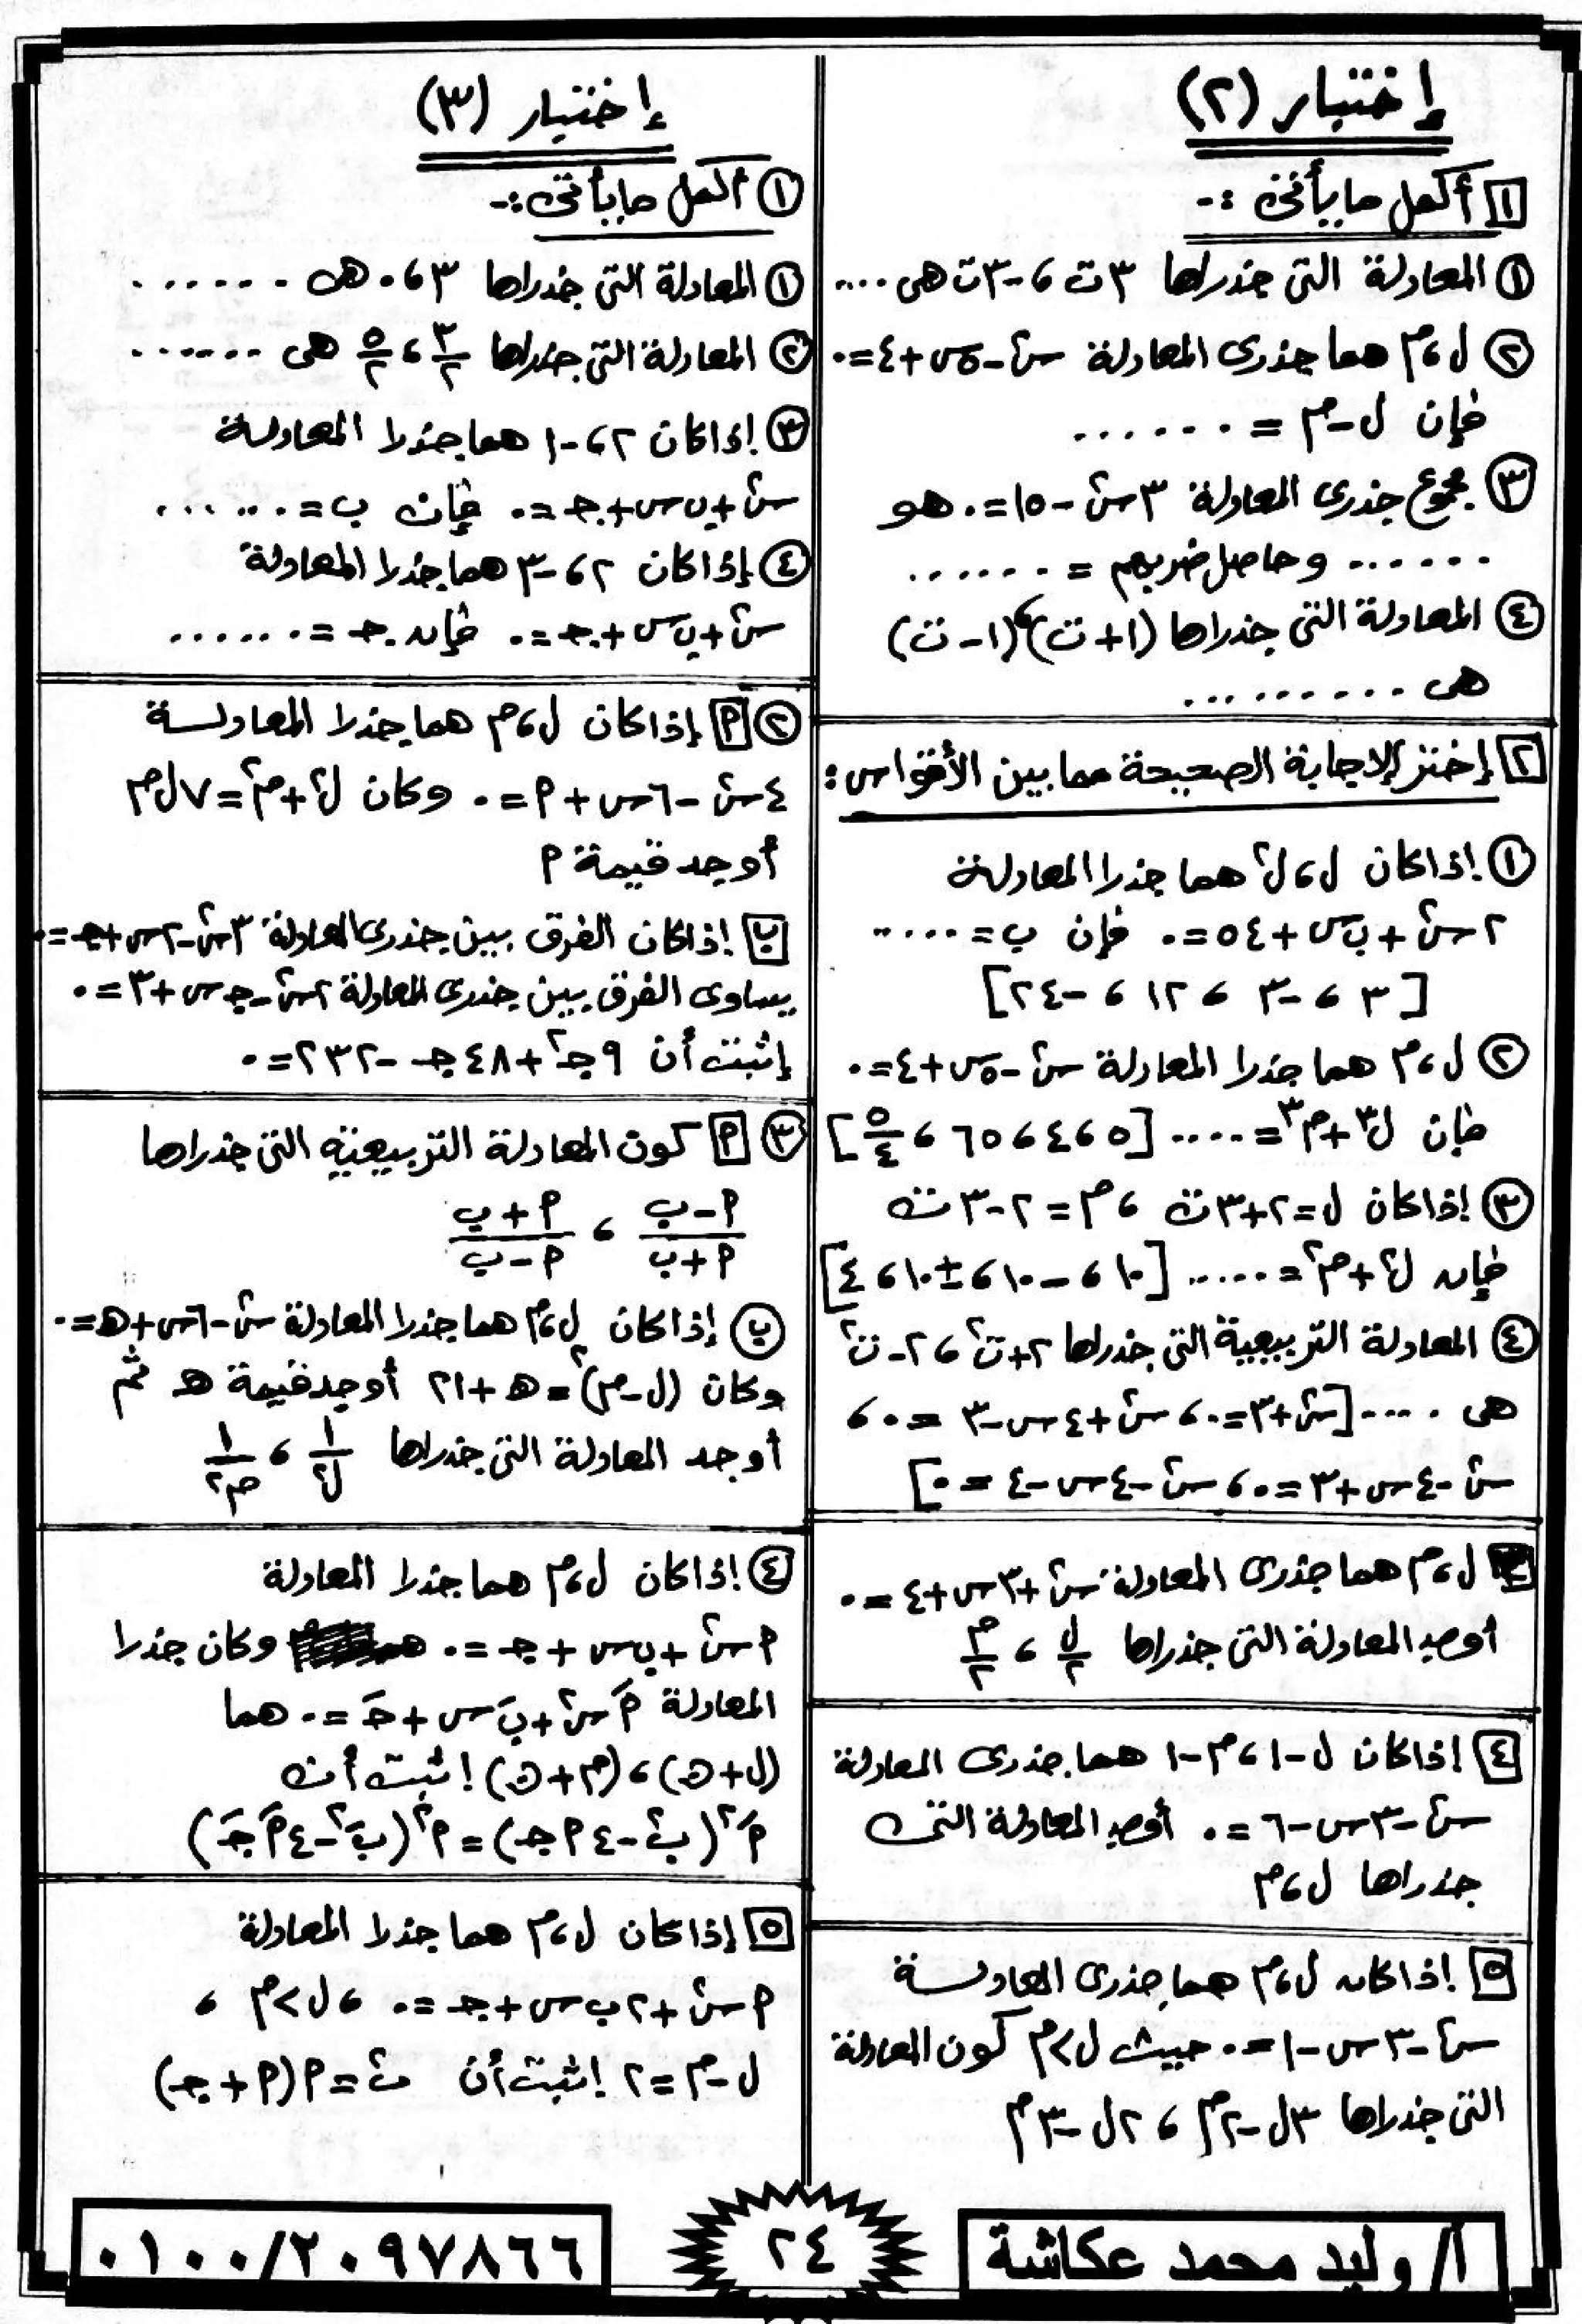 إختبار (٢)
١ أكمل ما يأتى :-
① المعادلة التى جذراها ٣ت ، -٣ت هى ....
② ل ، م هما جذرى المعادلة س² - ٥س + ٤ = ٠
فإن ل - م = ......
③ مجموع جذرى المعادلة ٣س² - ١٥ = ٠ هو
...... وحاصل ضربهم = ......
④ المعادلة التى جذراها (١ + ت) ، (١ - ت)
هى .........
٢ إختر الاجابة الصحيحة مما بين الأقواس :
① إذا كان ل ، ل² هما جذرا المعادلة
٢س² + ب س + ٥٤ = ٠ فإن ب = .....
[٣ ، -٣ ، ١٢ ، -٢٤]
② ل ، م هما جذرا المعادلة س² - ٥س + ٤ = ٠
فإن ل³ + م³ = .... [٥ ، ٤ ، ٦٥ ، ٥/٤]
③ إذا كان ل = ٢ + ٣ت ، م = ٢ - ٣ت
فإن ل² + م² = ..... [١٠ ، -١٠ ، ±١٠ ، ٤]
④ المعادلة التربيعية التى جذراها ٢ + ت² ، ٢ - ت²
هى ..... [س² + ٣ = ٠ ، س² + ٤س - ٣ = ٠ ،
س² - ٤س + ٣ = ٠ ، س² - ٤س - ٤ = ٠]
٣ ل ، م هما جذرى المعادلة س² + ٣س + ٤ = ٠
أوجد المعادلة التى جذراها ل/٢ ، م/٢
٤ إذا كان ل - ١ ، م - ١ هما جذرى المعادلة
س² - ٣س - ٦ = ٠ أوجد المعادلة التى
جذراها ل ، م
٥ إذا كان ل ، م هما جذرى المعادلة
س² - ٣س - ١ = ٠ حيث ل > م كون المعادلة
التى جذراها ٣ل - ٢م ، ٢ل - ٣م
إختبار (٣)
① أكمل ما يأتى :-
① المعادلة التى جذراها ٣ ، ٠ هى ......
② المعادلة التى جذراها ٣/٢ ، ٥/٢ هى ......
③ إذا كان ٢ ، -١ هما جذرا المعادلة
س² + ب س + جـ = ٠ فإن ب = ......
④ إذا كان ٢ ، -٣ هما جذرا المعادلة
س² + ب س + جـ = ٠ فإن جـ = ......
② أ إذا كان ل ، م هما جذرا المعادلة
٤س² - ٦س + أ = ٠ وكان ل² + م² = ٧ل م
أوجد قيمة أ
ب إذا كان الفرق بين جذرى المعادلة ٣س² - ٢س + جـ = ٠
يساوى الفرق بين جذرى المعادلة ٢س² - جـ س + ٣ = ٠
إثبت أن ٩جـ² + ٤٨جـ - ٢٣٢ = ٠
③ أ كون المعادلة التربيعية التى جذراها
(أ - ب)/(أ + ب) ، (أ + ب)/(أ - ب)
ب إذا كان ل ، م هما جذرا المعادلة س² - ٦س + هـ = ٠
وكان (ل - م)² = هـ + ٢١ أوجد قيمة هـ ثم
أوجد المعادلة التى جذراها ١/ل² ، ١/م²
④ إذا كان ل ، م هما جذرا المعادلة
أ س² + ب س + جـ = ٠ وكان جذرا
المعادلة أَ س² + بَ س + جـَ = ٠ هما
(ل + ن) ، (م + ن) إثبت أن
أَ² (ب² - ٤ أ جـ) = أ² (بَ² - ٤ أَ جـَ)
٥ إذا كان ل ، م هما جذرا المعادلة
أ س² + ٢ب س + جـ = ٠ ، ل > م ،
ل - م = ٢ إثبت أن ب² = أ (أ + جـ)
أ/ وليد محمد عكاشة
٢٤
٠١٠٠/٢٠٩٧٨٦٦